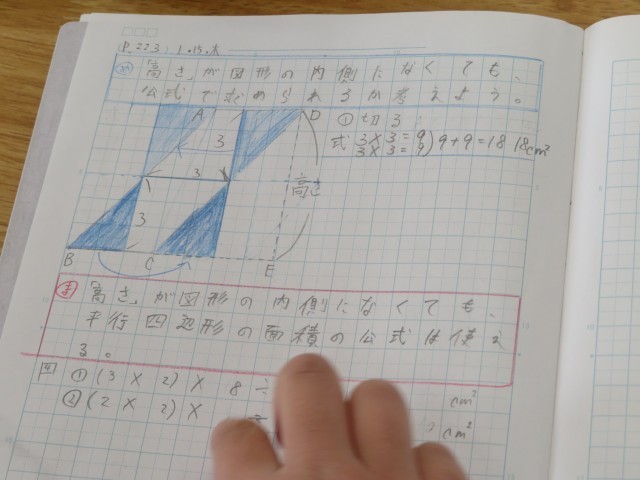 P. 223 1.15.木
め 「高さ」が図形の内側になくても、
公式で求められるか考えよう。
A
D
① 切る
式 3×3=9
3×3=9) 9+9=18 18cm²
3
3
高さ
3
B
C
E
ま 「高さ」が図形の内側になくても、
平行四辺形の面積の公式は使え
る。
① (3×2)× 8÷ cm²
② (2×2)× cm²